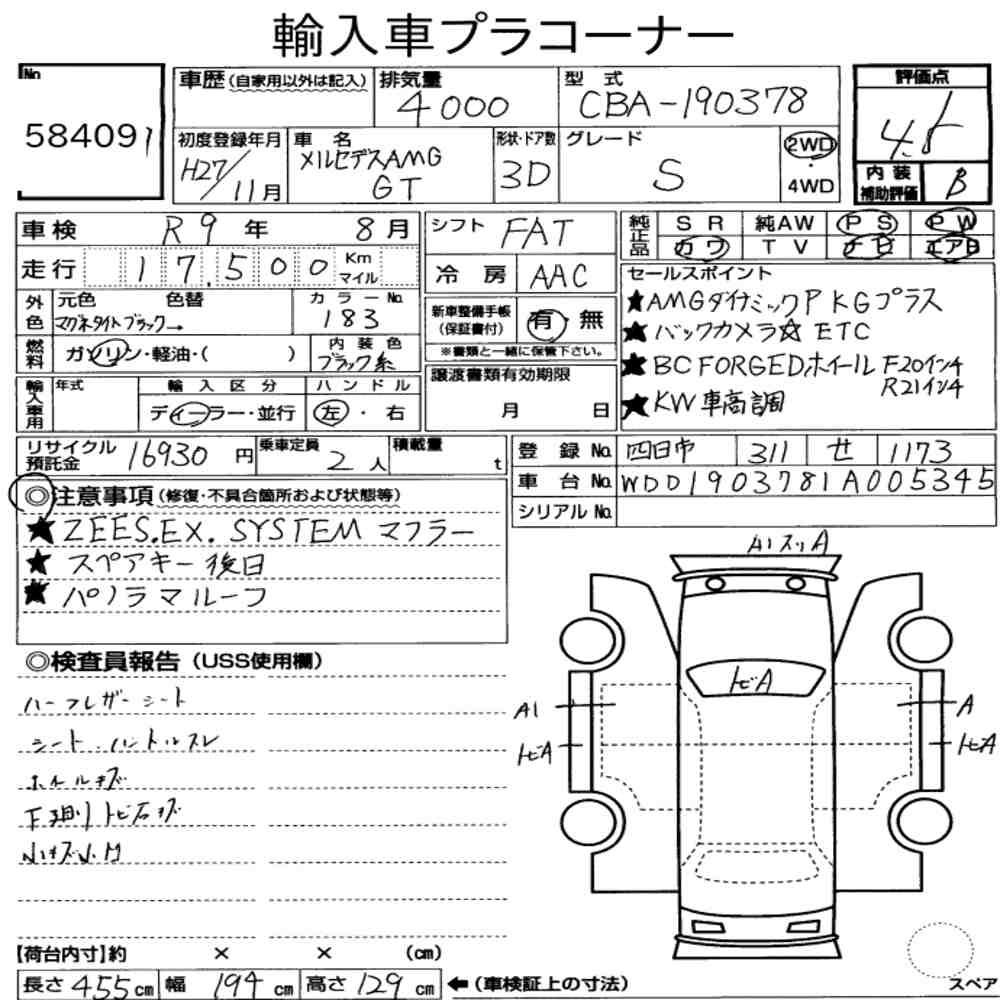 輸入車プラコーナー
No
584091
車歴(自家用以外は記入)
排気量
4000
型式
CBA-190378
評価点
4.5
初度登録年月
H27/11月
車名
メルセデスAMG
GT
形状・ドア数
3D
グレード
S
2WD
・
4WD
内装
補助評価
B
車検 R9年 8月
シフト FAT
純正品 SR 純AW PS PW
カワ TV ナビ エアB
走行 17,500 Km マイル
冷房 AAC
セールスポイント
★AMGダイナミックPKGプラス
★バックカメラ☆ETC
★BC FORGEDホイール F20インチ
R21インチ
★KW車高調
外色 元色 色替
マグネタイトブラック→
カラーNo.
183
新車整備手帳
(保証書付)
有・無
※書類と一緒に保管下さい。
燃料 ガソリン・軽油・( )
内装色
ブラック系
譲渡書類有効期限
月 日
輸入車用 年式
輸入区分
ディーラー・並行
ハンドル
左・右
リサイクル
預託金 16930円
乗車定員
2人
積載量
t
登録No. 四日市 311 せ 1173
車台No. WDD1903781A005345
シリアルNo.
◎注意事項(修復・不具合箇所および状態等)
★ZEES.EX.SYSTEMマフラー
★スペアキー後日
★パノラマルーフ
◎検査員報告(USS使用欄)
ハーフレザーシート
シート、ハンドルスレ
ホイールキズ
下廻りトビ石キズ
小キズ小凹
A1スリA
トビA
A1
トビA
A
トビA
【荷台内寸】約 × × (cm)
長さ455cm 幅194cm 高さ129cm ←(車検証上の寸法)
スペア